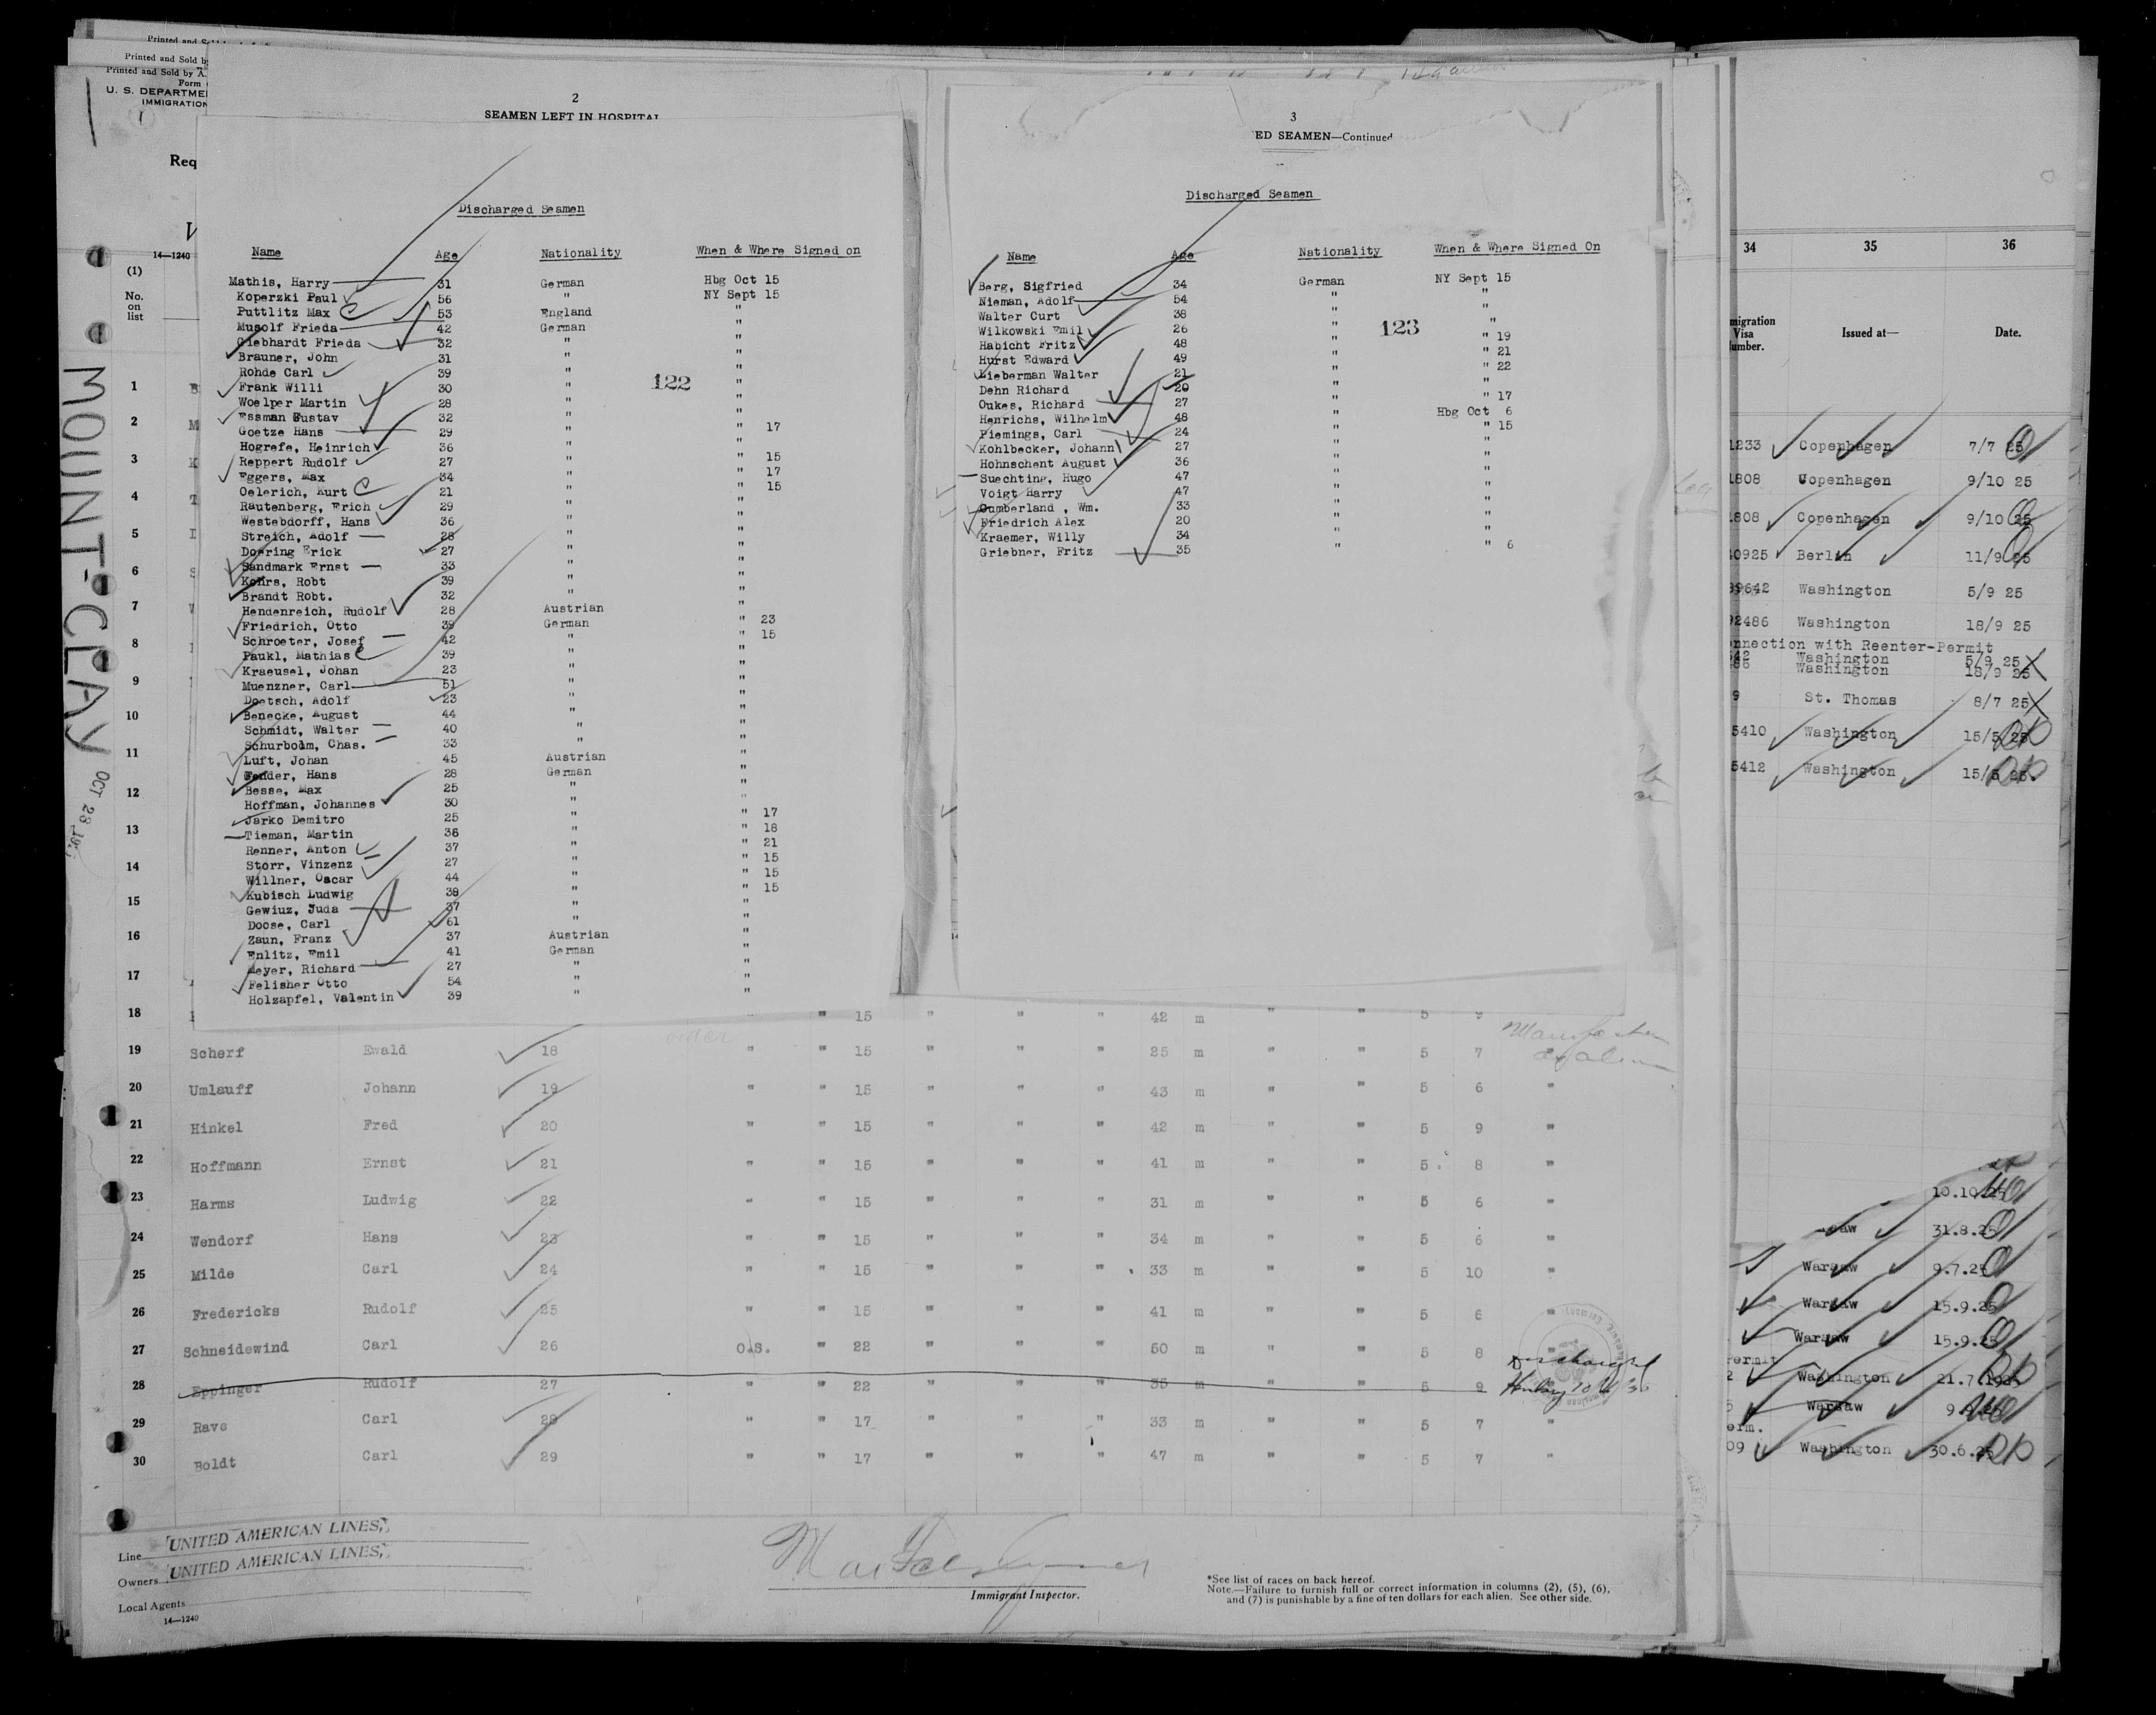 Printed and
Printed and Sold by
Printed and Sold by A.
Form
U. S. DEPARTME
IMMIGRATION
Req
14—1240
(1)
No.
on
list
MOUNT-CLAY
OCT 23
2
SEAMEN LEFT IN HOSPITAL
Discharged Seamen
Name Age Nationality When & Where Signed on
Mathis, Harry 31 German Hbg Oct 15
Koperzki Paul 56 " NY Sept 15
Puttlitz Max 53 England "
Musolf Frieda 42 German "
Giebhardt Frieda 32 " "
Brauner, John 31 " "
Rohde Carl 39 " "
122
Frank Willi 30 " "
Woelper Martin 28 " "
Essman Gustav 32 " "
Goetze Hans 29 " " 17
Hogrefe, Heinrich 36 " "
Reppert Rudolf 27 " " 15
Eggers, Max 34 " " 17
Oelerich, Kurt 21 " " 15
Rautenberg, Erich 29 " "
Westebdorff, Hans 36 " "
Streich, Adolf 28 " "
Doering Erick 27 " "
Sandmark Ernst 33 " "
Kohrs, Robt 39 " "
Brandt Robt. 32 " "
Hendenreich, Rudolf 28 Austrian "
Friedrich, Otto 39 German " 23
Schroeter, Josef 42 " " 15
Paukl, Mathias 39 " "
Kraeusel, Johan 23 " "
Muenzner, Carl 51 " "
Doetsch, Adolf 23 " "
Benecke, August 44 " "
Schmidt, Walter 40 " "
Schurbolm, Chas. 33 " "
Luft, Johan 45 Austrian "
Fender, Hans 28 German "
Besse, Max 25 " "
Hoffman, Johannes 30 " "
Jarko Demitro 25 " " 17
Tieman, Martin 36 " " 18
Renner, Anton 37 " " 21
Storr, Vinzenz 27 " " 15
Willner, Oscar 44 " " 15
Kubisch Ludwig 38 " " 15
Gewiuz, Juda 37 " "
Doose, Carl 61 " "
Zaun, Franz 37 Austrian "
Enlitz, Emil 41 German "
Meyer, Richard 27 " "
Felisher Otto 54 " "
Holzapfel, Valentin 39 " "
3
ED SEAMEN—Continued
Discharged Seamen
Name Age Nationality When & Where Signed On
Berg, Sigfried 34 German NY Sept 15
Nieman, Adolf 54 " "
Walter Curt 38 " "
Wilkowski Emil 26 " "
123
Habicht Fritz 48 " " 19
Hurst Edward 49 " " 21
Lieberman Walter 21 " " 22
Dehn Richard 20 " "
Oukes, Richard 27 " " 17
Henrichs, Wilhelm 48 " Hbg Oct 6
Piemings, Carl 24 " " 15
Kohlbecker, Johann 27 " "
Hohnschent August 36 " "
Suechting, Hugo 47 " "
Voigt Harry 47 " "
Cumberland , Wm. 33 " "
Friedrich Alex 20 " "
Kraemer, Willy 34 " "
Griebner, Fritz 35 " " 6
34 35 36
migration
Visa
umber.
Issued at—
Date.
1233 Copenhagen 7/7 25
1808 Copenhagen 9/10 25
1808 Copenhagen 9/10 25
0925 Berlin 11/9 25
39642 Washington 5/9 25
92486 Washington 18/9 25
nnection with Reenter-Permit
42 Washington 5/9 25
86 Washington 18/9 25
9 St. Thomas 8/7 25
5410 Washington 15/5 25
5412 Washington 15/5 25.
10.10.25
saw 31.8.25
Warsaw 9.7.25
Warsaw 15.9.25
Warsaw 15.9.25
Permit
2 Washington 21.7.1925
Warsaw
erm.
09 Washington 30.6.25
1
2
3
4
5
6
7
8
9
10
11
12
13
14
15
16
17
18 " 15 " " " 42 m " " 5 9
19 Scherf Ewald 18 " " 15 " " " 25 m " " 5 7 "
20 Umlauff Johann 19 " " 15 " " " 43 m " " 5 6 "
21 Hinkel Fred 20 " " 15 " " " 42 m " " 5 9 "
22 Hoffmann Ernst 21 " " 15 " " " 41 m " " 5 8 "
23 Harms Ludwig 22 " " 15 " " " 31 m " " 5 6 "
24 Wendorf Hans 23 " " 15 " " " 34 m " " 5 6 "
25 Milde Carl 24 " " 15 " " " 33 m " " 5 10 "
26 Fredericks Rudolf 25 " " 15 " " " 41 m " " 5 6 "
27 Schneidewind Carl 26 O.S. " 22 " " " 50 m " " 5 8 "
28 Eppinger Rudolf 27 " " 22 " " " 35 m " " 5 9 Discharged
29 Rave Carl 28 " " 17 " " " 33 m " " 5 7 "
30 Boldt Carl 29 " " 17 " " " 47 m " " 5 7 "
Line UNITED AMERICAN LINES,
Owners UNITED AMERICAN LINES,
Local Agents
14—1240
Immigrant Inspector.
*See list of races on back hereof.
Note.—Failure to furnish full or correct information in columns (2), (5), (6),
and (7) is punishable by a fine of ten dollars for each alien. See other side.